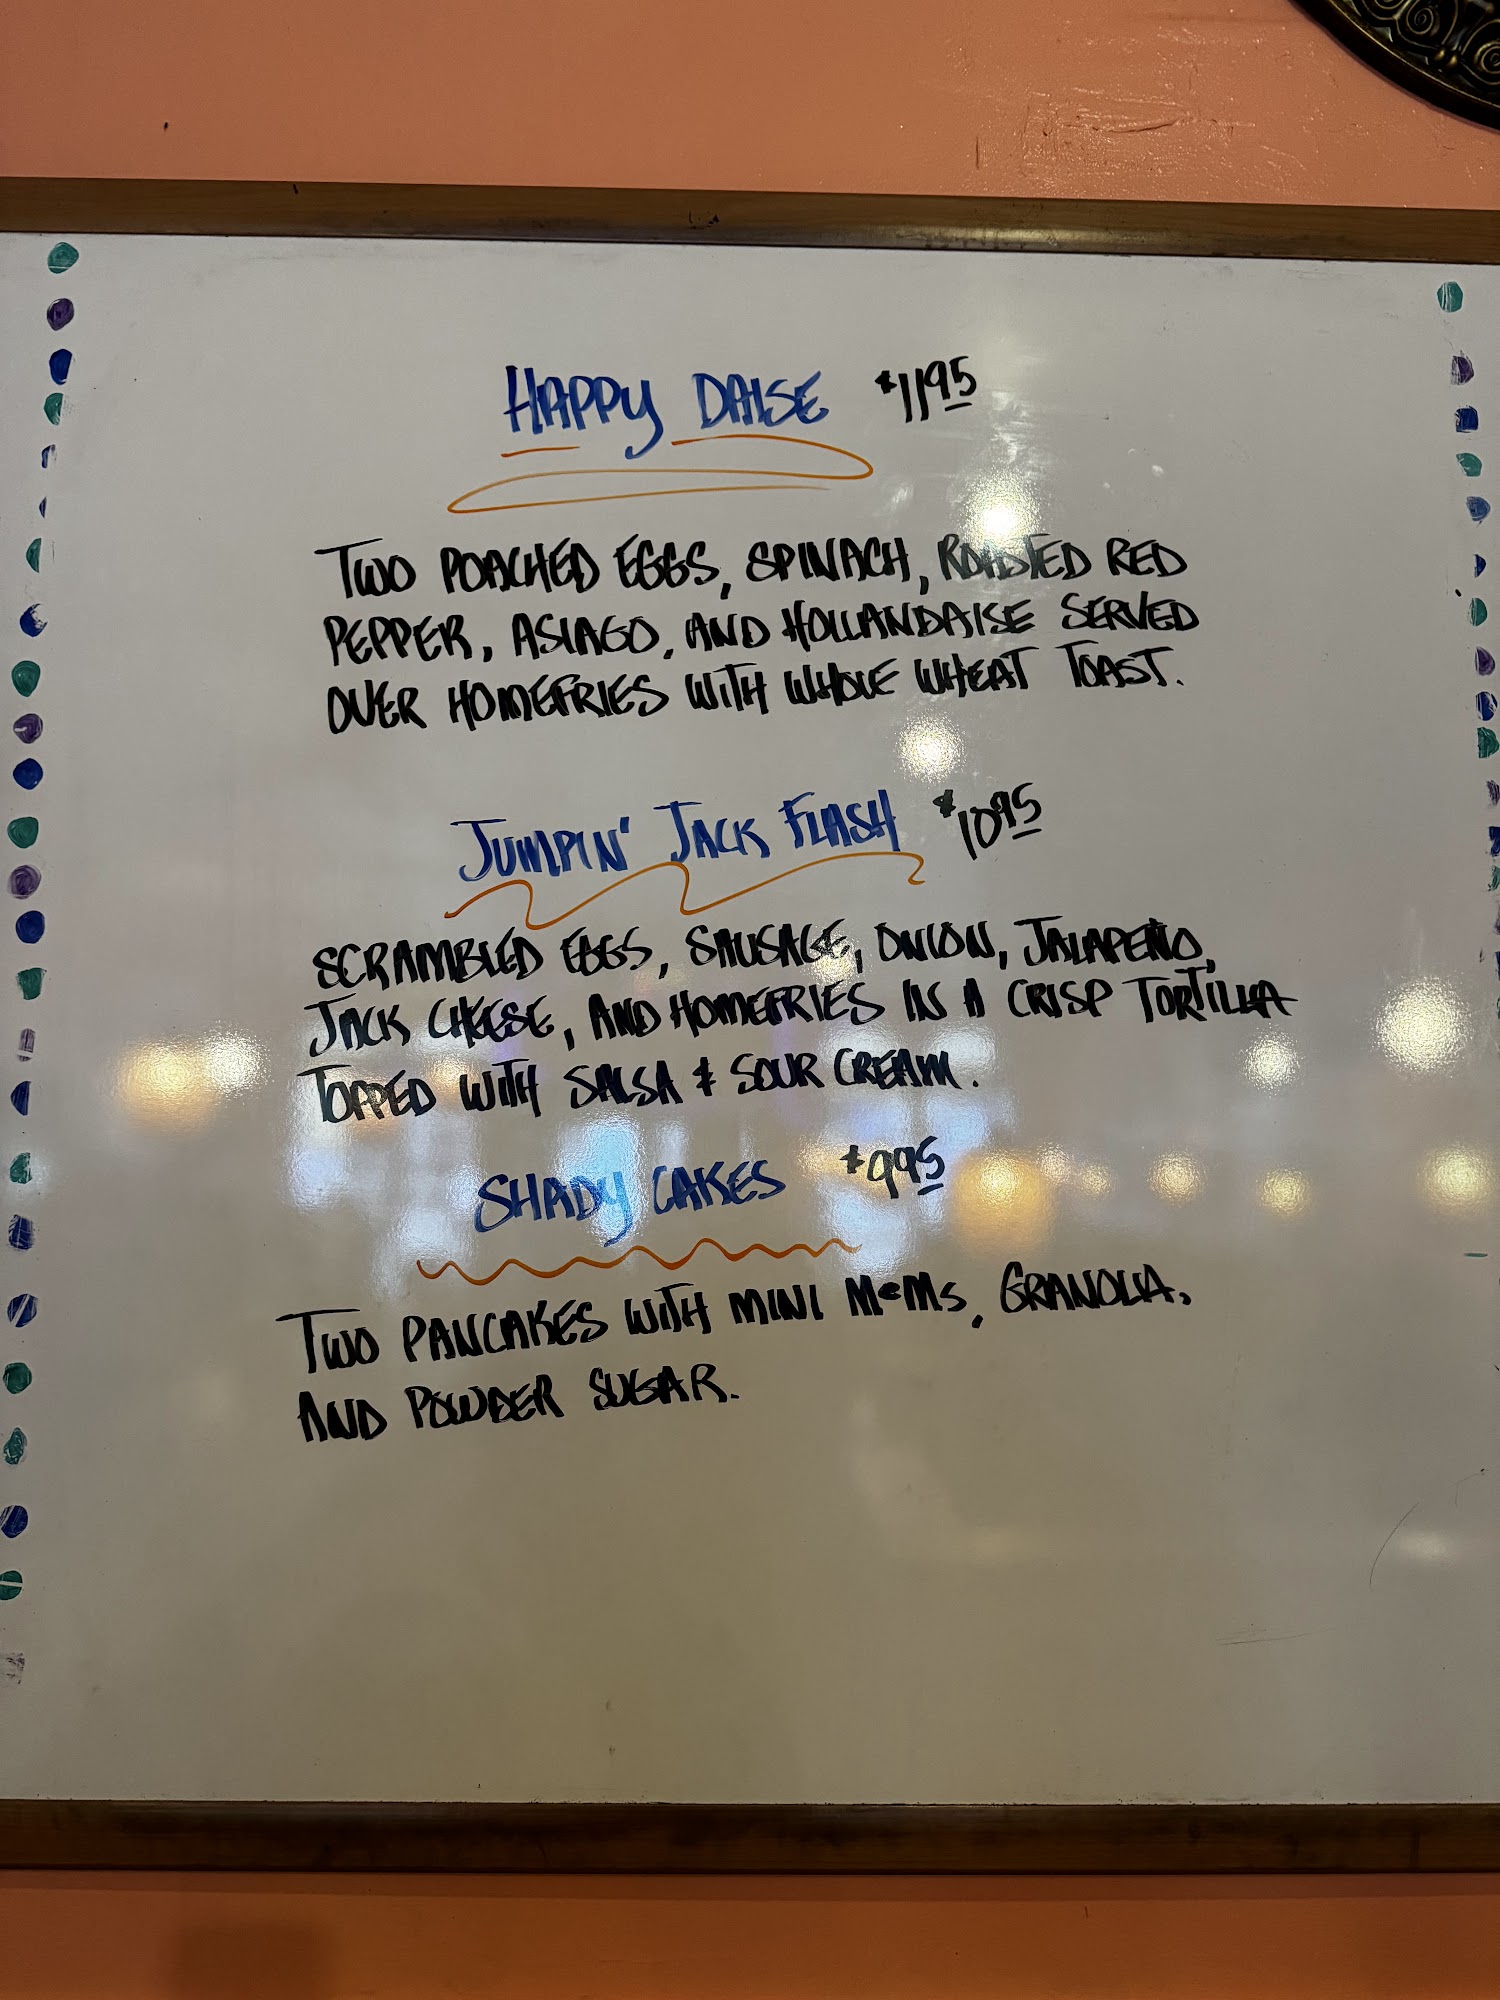 HAPPY DAISE $11.95
TWO POACHED EGGS, SPINACH, ROASTED RED
PEPPER, ASIAGO, AND HOLLANDAISE SERVED
OVER HOMEFRIES WITH WHOLE WHEAT TOAST.
JUMPIN' JACK FLASH $10.95
SCRAMBLED EGGS, SAUSAGE, ONION, JALAPEÑO,
JACK CHEESE, AND HOMEFRIES IN A CRISP TORTILLA
TOPPED WITH SALSA & SOUR CREAM.
SHADY CAKES $9.95
TWO PANCAKES WITH MINI M&MS, GRANOLA,
AND POWDER SUGAR.